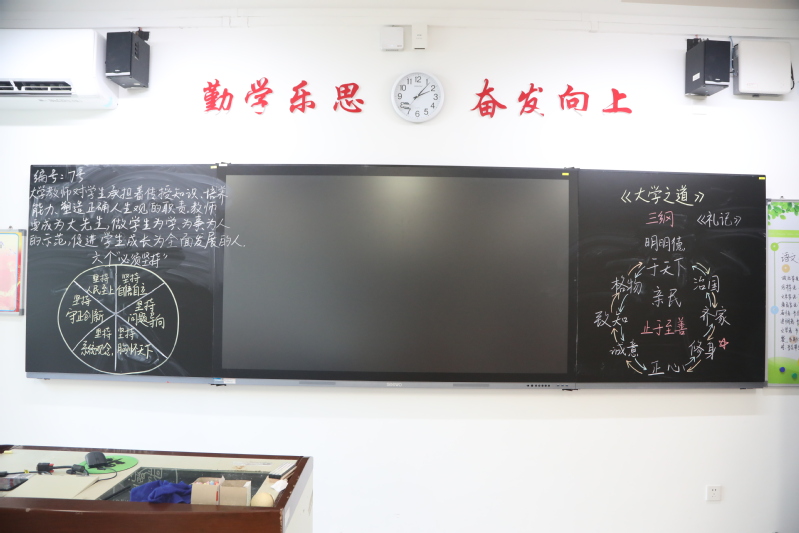 勤学乐思 奋发向上
编号:7号
大学教师对学生承担着传授知识、培养
能力、塑造正确人生观的职责。教师
要成为大先生,做学生为学、为事、为人
的示范,促进学生成长为全面发展的人.
六个"必须坚持"
坚持
人民至上
坚持
自信自立
坚持
守正创新
坚持
问题导向
坚持
系统观念
坚持
胸怀天下
《大学之道》
三纲 《礼记》
明明德
于天下
格物
治国
亲民
致知
齐家
止于至善
诚意
修身
正心
语文